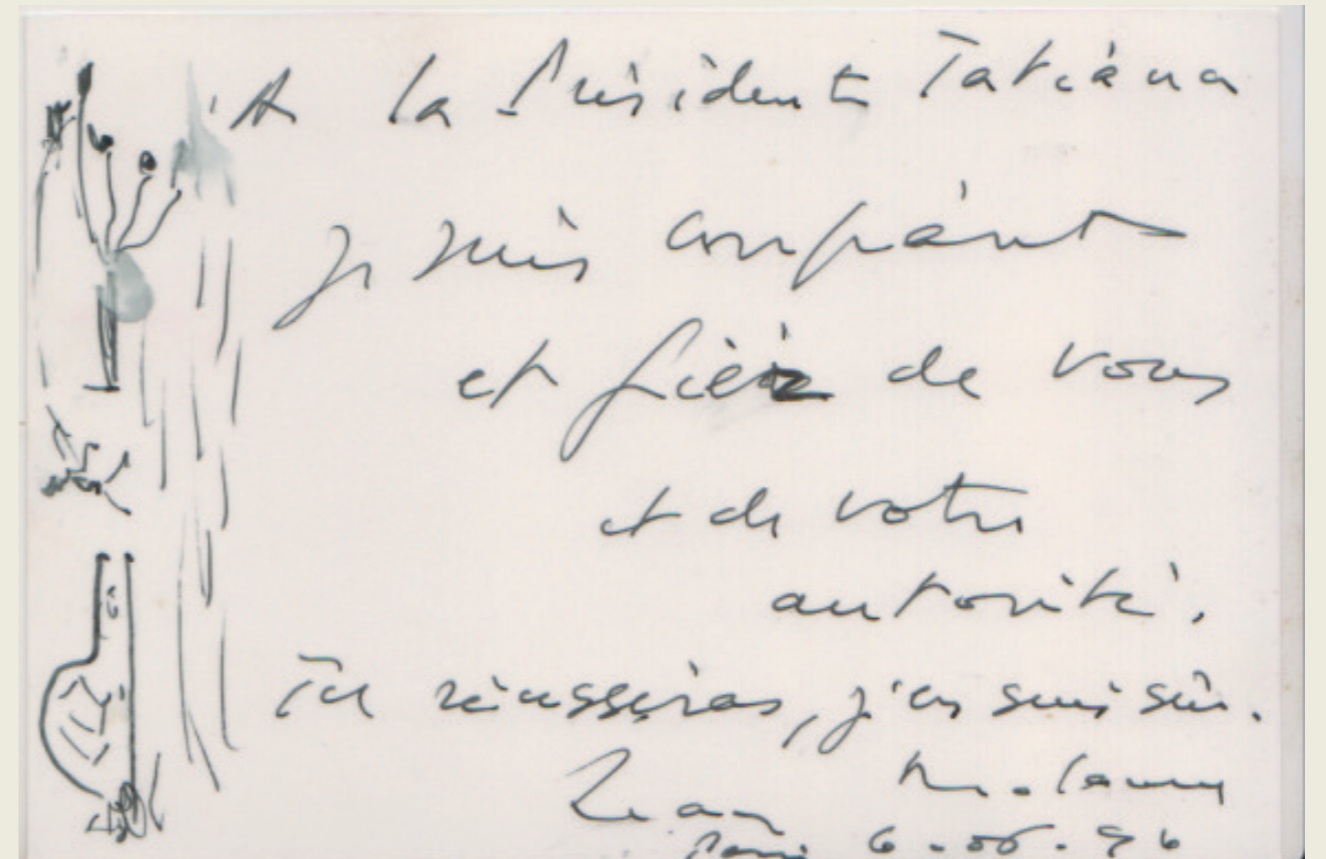 A la Présidente Tatiana
Je suis confiant
et fier de vous
et de votre
autorité.
Tu réussiras, j'en suis sûr.
Jean
Paris 6-06-96